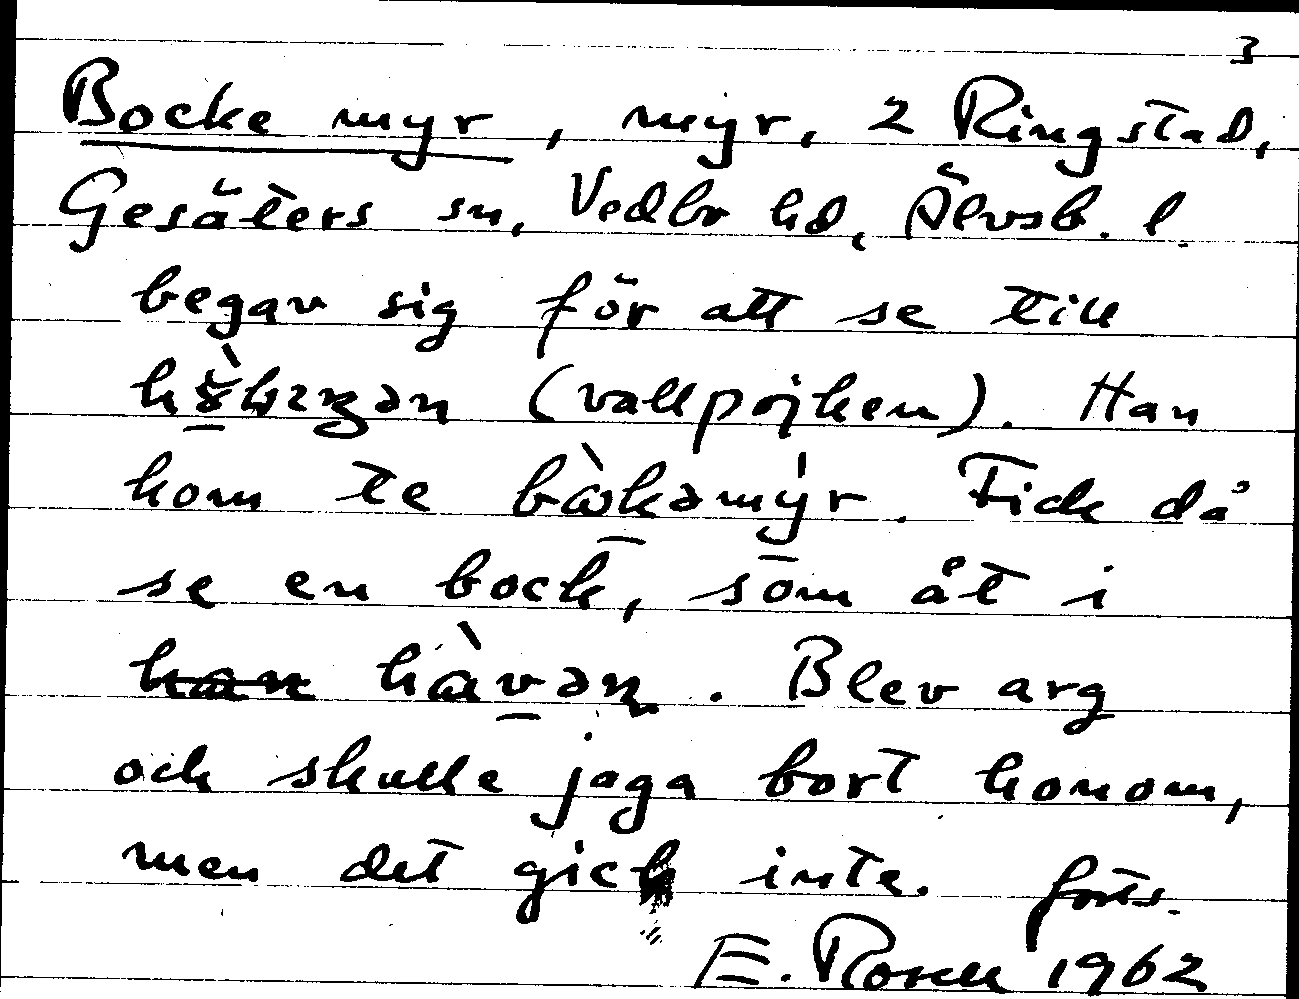 3
Bocke myr, myr, 2 Ringstad,
Gesäters sn, Vedbo hd, Älvsb. l.
begav sig för att se till
(vallpojken). Han
kom te bɷ̀kəmýr. Fick då
se en bock, som åt i
han hɷ̀vən. Blev arg
och skulle jaga bort honom,
men det gick inte. forts.
E. Rosell 1962